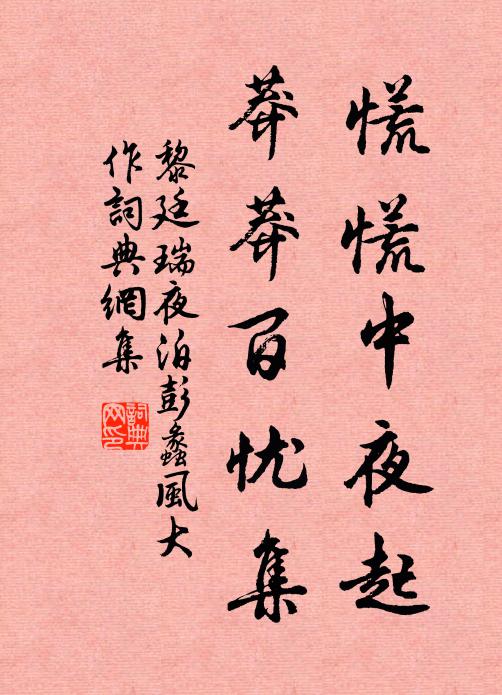 慌慌中夜起
莽莽百忧集
黎廷瑞夜泊彭蠡風大
作詞典網集
詞典網印